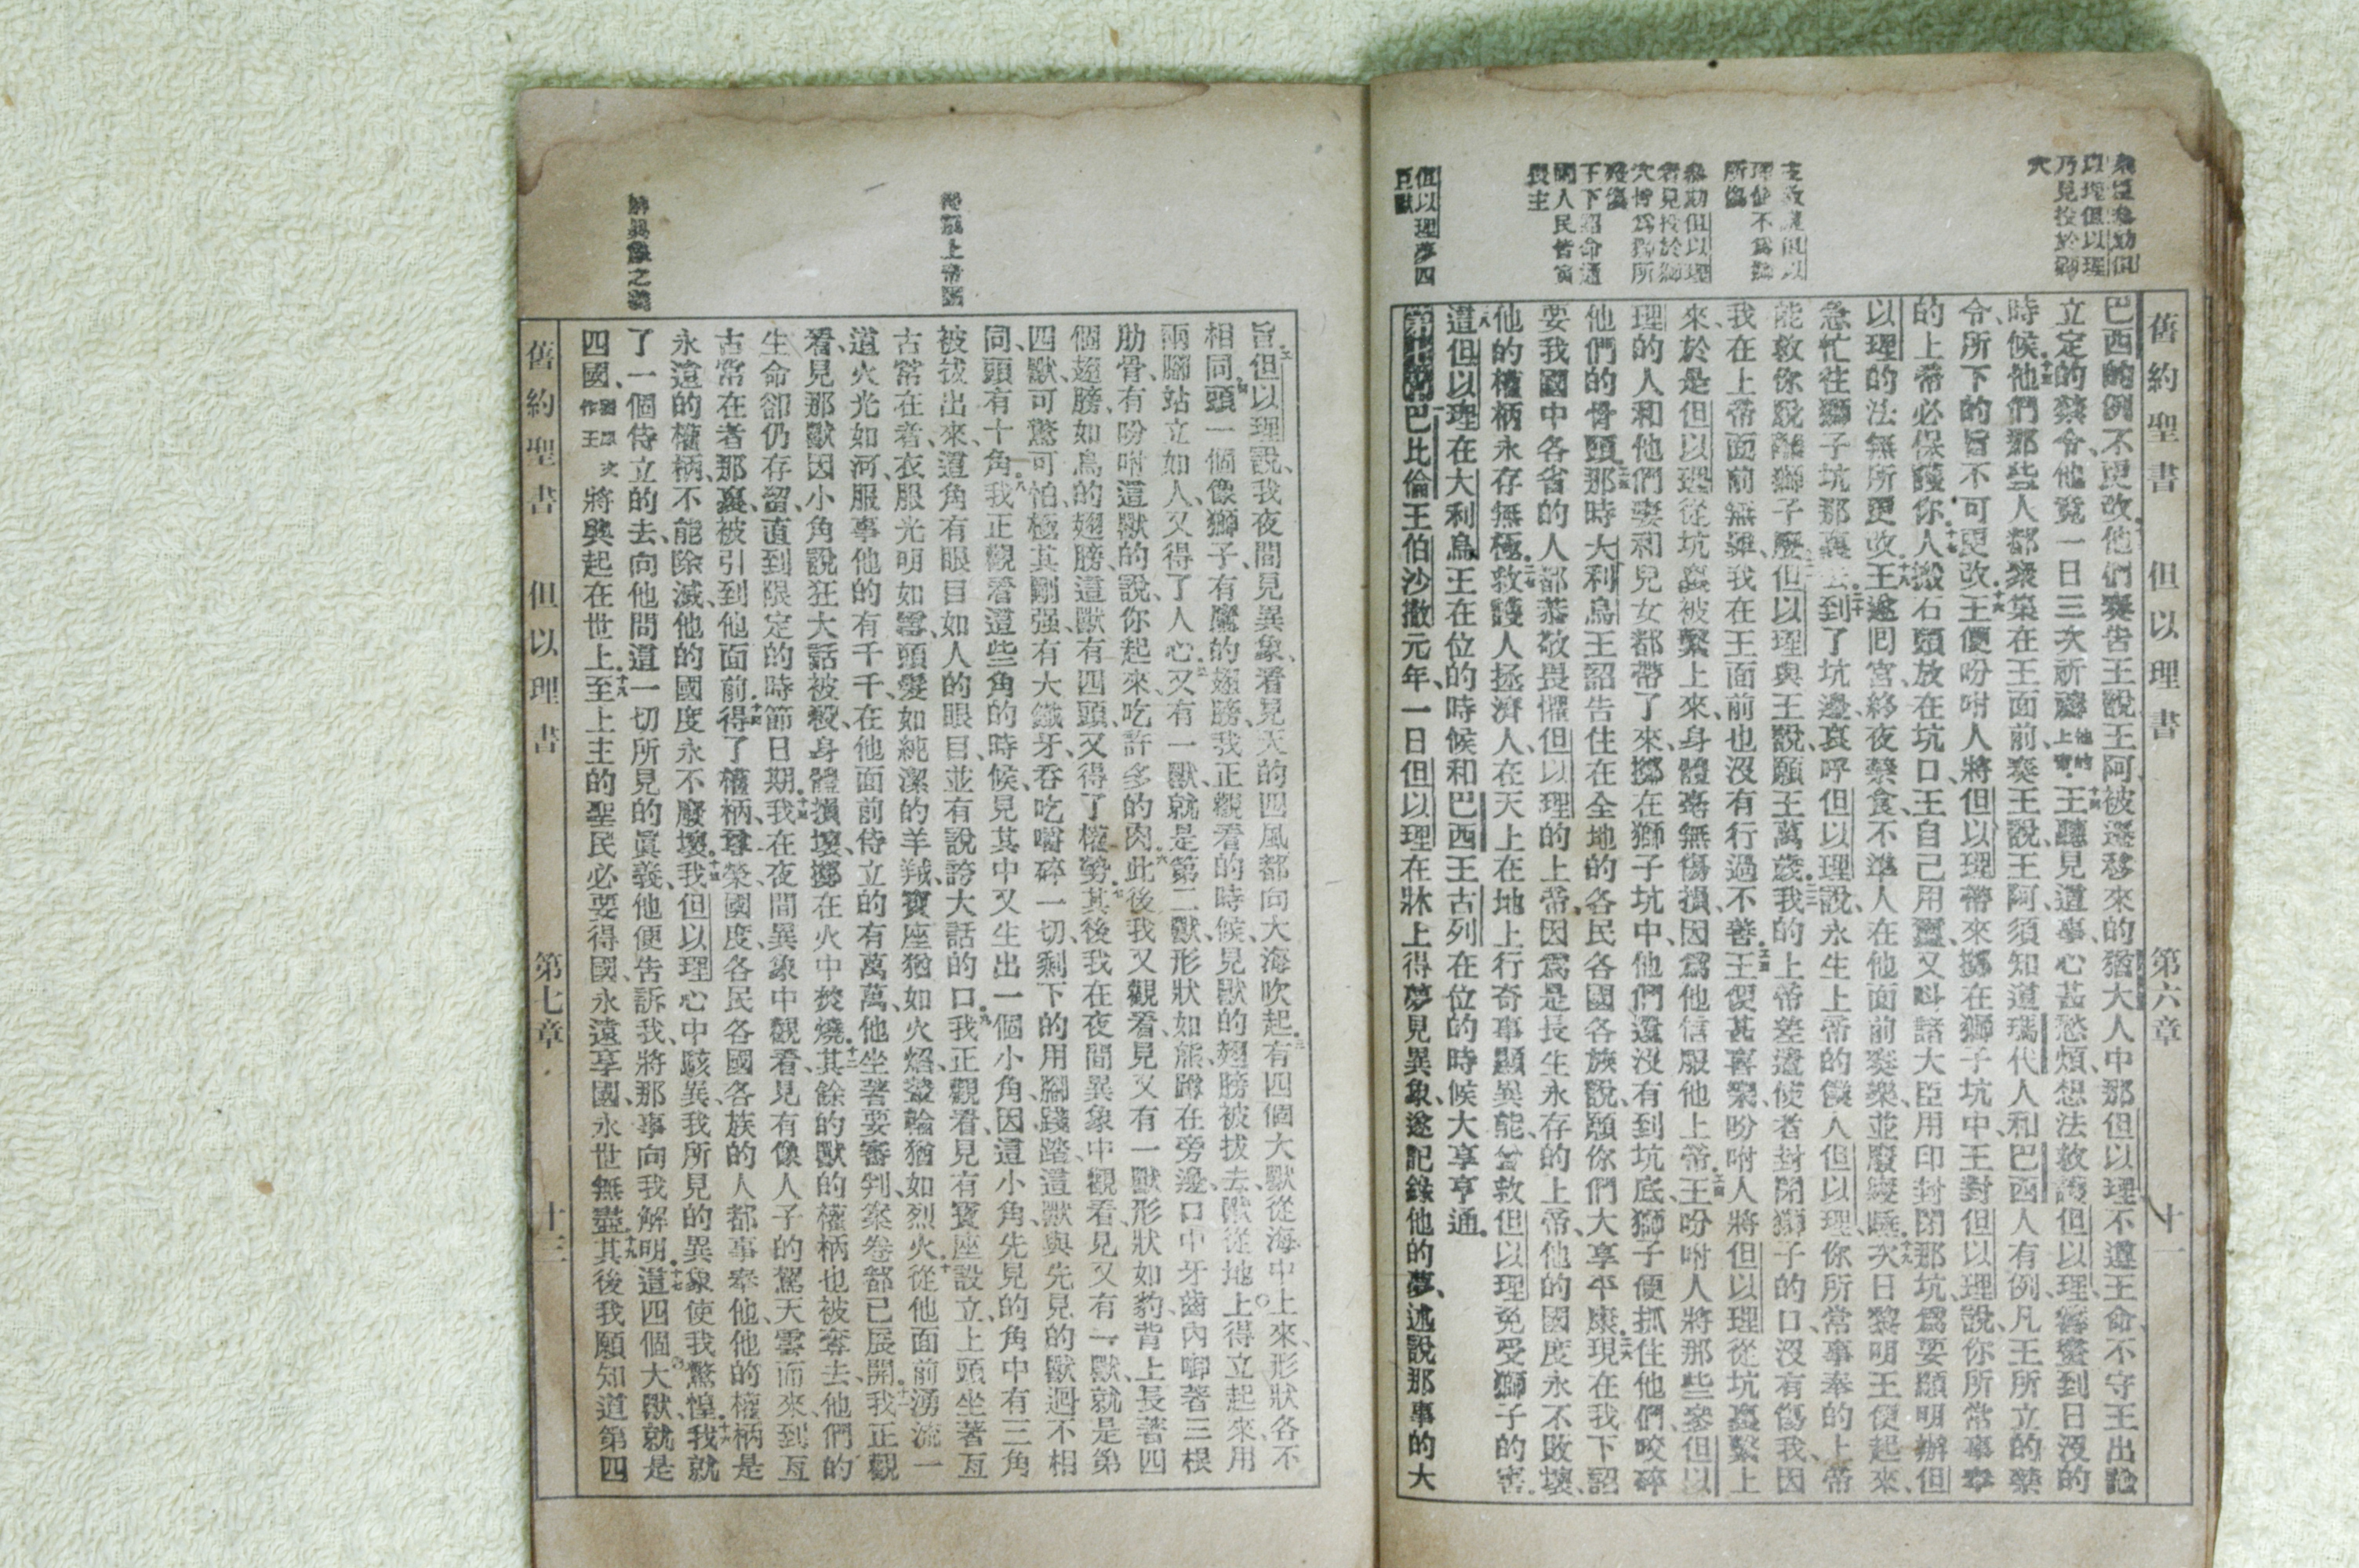 舊約聖書 但以理書 第六章 十一
巴西的例不更改他們奏告王說王阿被遷移來的猶大人中那但以理不遵王命不守王出諭
立定的禁令、他竟一日三次祈禱他的上帝王聽見這事、心甚愁煩想法救護但以理、籌畫到日沒的
時候十五他們那些人都聚集在王面前、奏王說、王阿須知道瑪代人和巴西人有例凡王所立的禁
令、所下的旨不可更改十六王便吩咐人將但以理帶來擲在獅子坑中、王對但以理說你所常事奉
的上帝必保護你十七人搬石頭放在坑口、王自己用璽、又叫諸大臣用印封閉那坑、爲要顯明辦但
以理的法無所更改十八王遂回宮、終夜禁食、不準人在他面前奏樂、並廢寢睡十九次日黎明王便起來、
急忙往獅子坑那裏去二十到了坑邊、哀呼但以理說、永生上帝的僕人但以理、你所常事奉的上帝
能救你脫離獅子麼但以理與王說、願王萬歲我的上帝差遣使者封閉獅子的口沒有傷我、因
我在上帝面前無罪、我在王面前也沒有行過不善王便甚喜樂吩咐人將但以理從坑裏繫上
來、於是但以理從坑裏被繫上來、身體毫無傷損、因爲他信服他上帝王吩咐人將那些參但以
理的人和他們妻和兒女都帶了來、擲在獅子坑中、他們還沒有到坑底、獅子便抓住他們、咬碎
他們的骨頭那時大利烏王詔告住在全地的各民各國各族說、願你們大享平康現在我下詔
要我國中各省的人都恭敬畏懼但以理的上帝因爲是長生永存的上帝、他的國度永不敗壞、
他的權柄永存無極救護人拯濟人、在天上在地上行奇事顯異能、曾救但以理免受獅子的害
這但以理在大利烏王在位的時候和巴西王古列在位的時候大享亨通
第七章 巴比倫王伯沙撒元年、一日但以理在牀上得夢見異象、遂記錄他的夢、述說那事的大
但以理夢四
巨獸
旨但以理說、我夜間見異象、看見天的四風都向大海吹起三有四個大獸、從海中上來、形狀各不
相同四頭一個像獅子、有鷹的翅膀、我正觀看的時候、見獸的翅膀被拔去、獸從地上得立起來、用
兩腳站立如人、又得了人心五又有一獸、就是第二獸、形狀如熊、蹲在旁邊、口中牙齒內啣著三根
肋骨、有吩咐這獸的、說、你起來、吃許多的肉六此後我又觀看、見又有一獸形狀如豹、背上長著四
個翅膀、如鳥的翅膀、這獸有四頭、又得了權勢七其後我在夜間異象中觀看、見又有一獸、就是第
四獸、可驚可怕、極其剛强、有大鐵牙、吞吃嚼碎一切、剩下的用腳踐踏、這獸與先見的獸迥不相
同、頭有十角八我正觀看這些角的時候、見其中又生出一個小角、因這小角、先見的角中有三角
被拔出來、這角有眼目如人的眼目、並有說誇大話的口九我正觀看、見有寶座設立、上頭坐著亙
古常在者、衣服光明如雪、頭髮如純潔的羊羢、寶座猶如火燄、輪猶如烈火十從他面前湧流一
道火光如河、服事他的有千千、在他面前侍立的有萬萬、他坐著要審判、案卷都已展開十一我正觀
看、見那獸因小角說狂大話被殺、身體損壞、擲在火中焚燒十二其餘的獸的權柄也被奪去、他們的
生命卻仍存留、直到限定的時節日期十三我在夜間異象中觀看、見有像人子的駕天雲而來、到亙
古常在者那裏、被引到他面前十四得了權柄、尊榮、國度、各民各國各族的人都事奉他、他的權柄是
永遠的權柄、不能除滅、他的國度永不廢壞十五我但以理心中駭異、我所見的異象使我驚惶十六我就
了一個侍立的去、向他問這一切所見的眞義、他便告訴我、將那事向我解明十七這四個大獸、就是
四國、國原文作王 將興起在世上十八至上主的聖民必要得國、永遠享國、永世無盡十九其後我願知道第四
舊約聖書 但以理書 第七章 十三